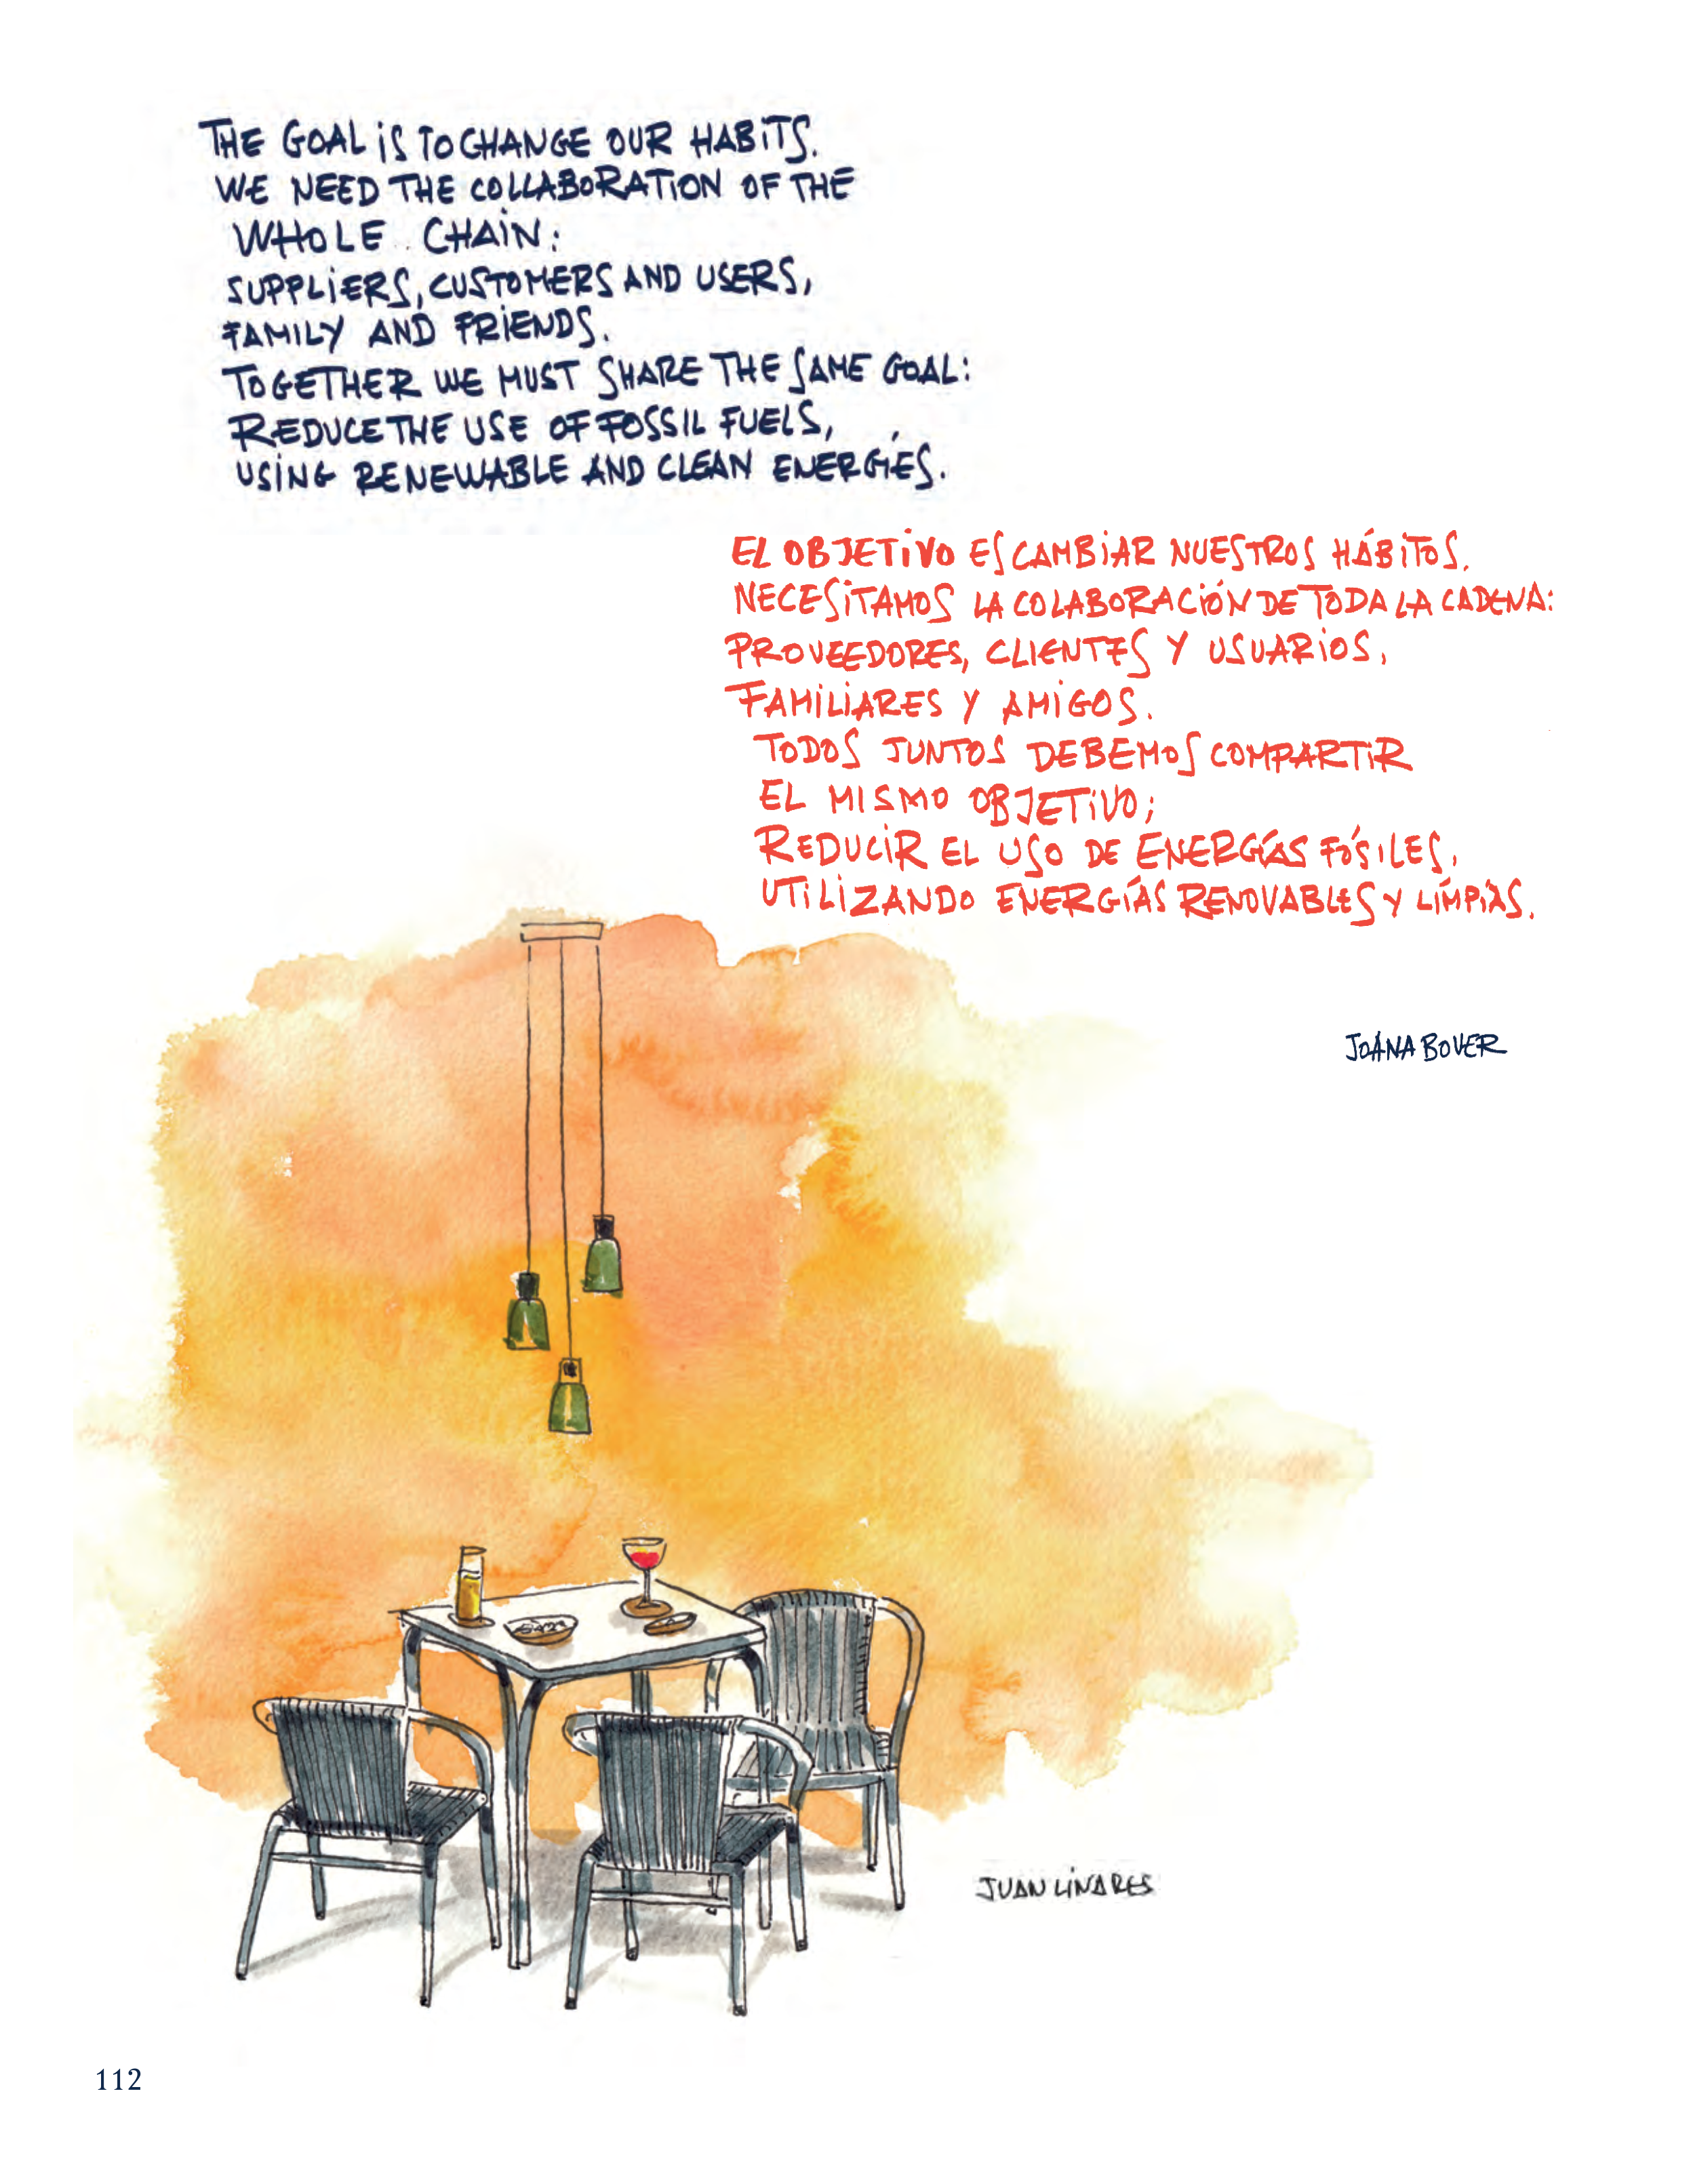 THE GOAL iS TO CHANGE OUR HABiTS.
WE NEED THE COLLABORATiON OF THE
WHOLE CHAiN:
SUPPLiERS, CUSTOMERS AND USERS,
FAMILY AND FRiENDS.
TOGETHER WE MUST SHARE THE SAME GOAL:
REDUCE THE USE OF FOSSIL FUELS,
USiNG RENEWABLE AND CLEAN ENERGíES.
EL OBJETiVO ES CAMBiAR NUESTROS HÁBiTOS.
NECESiTAMOS LA COLABORACiÓN DE TODA LA CADENA:
PROVEEDORES, CLIENTES Y USUARiOS,
FAMiLiARES Y AMiGOS.
TODOS JUNTOS DEBEMOS COMPARTiR
EL MISMO OBJETiVO;
REDUCiR EL USO DE ENERGÍAS FÓSILES,
UTiLiZANDO ENERGÍAS RENOVABLES Y LÍMPiAS.
JOANA BOVER
JUAN LiNARES
112